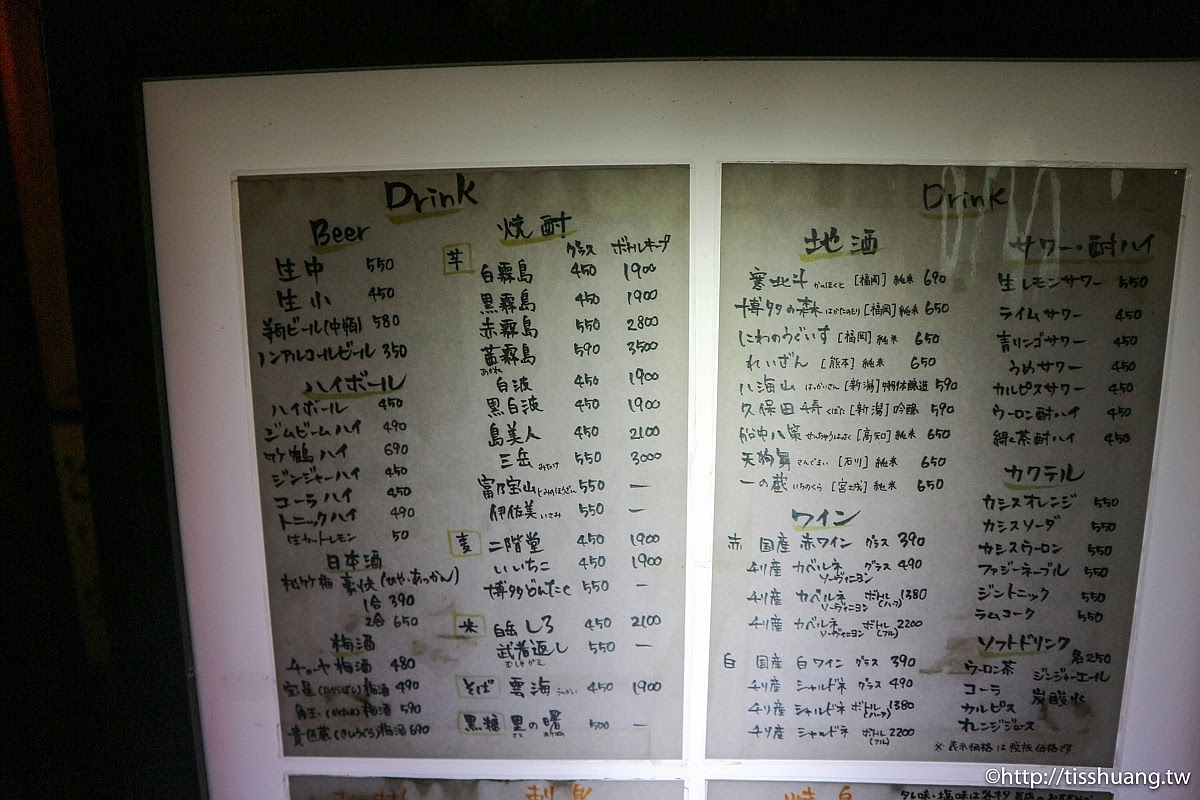 Drink
Beer
生中 550
生小 450
ビール(中瓶) 580
ノンアルコールビール 350
ハイボール
ハイボール 450
ジムビームハイ 490
竹鶴ハイ 690
ジンジャーハイ 450
コーラハイ 450
トニックハイ 490
生カットレモン 50
日本酒
松竹梅 豪快(ひや・あっかん)
1合 390
2合 650
梅酒
チョーヤ梅酒 480
梅酒 490
角玉 梅酒 590
梅酒 690
焼酎
グラス ボトルキープ
芋
白霧島 450 1900
黒霧島 450 1900
赤霧島 550 2800
茜霧島 590 3500
あかね
白波 450 1900
黒白波 450 1900
島美人 450 2100
三岳 みたけ 550 3000
富乃宝山 とみのほうざん 550 —
伊佐美 いさみ 550 —
麦 二階堂 450 1900
いいちこ 450 1900
博多どんたく 550 —
米 白岳しろ 450 2100
武者返し 550 —
むしゃがえし
そば 雲海 うんかい 450 1900
黒糖 里の曙 500 —
Drink
地酒
寒北斗 かんほくと [福岡] 純米 690
博多の森 はかたのもり [福岡] 純米 650
にわのうぐいす [福岡] 純米 650
れいざん [熊本] 純米 650
八海山 はっかいさん [新潟] 特別本醸造 590
久保田 千寿 くぼた [新潟] 吟醸 590
船中八策 せんちゅうはっさく [高知] 純米 650
天狗舞 てんぐまい [石川] 純米 650
一の蔵 いちのくら [宮城] 純米 650
ワイン
赤 国産 赤ワイン グラス 390
チリ産 カベルネ グラス 490
ソーヴィニヨン
チリ産 カベルネ ボトル 1380
ソーヴィニヨン (ハーフ)
チリ産 カベルネ ボトル 2200
ソーヴィニヨン (フル)
白 国産 白ワイン グラス 390
チリ産 シャルドネ グラス 490
チリ産 シャルドネ ボトル 1380
(ハーフ)
チリ産 シャルドネ ボトル 2200
(フル)
サワー・酎ハイ
生レモンサワー 550
ライムサワー 450
青リンゴサワー 450
うめサワー 450
カルピスサワー 450
ウーロン酎ハイ 450
緑茶酎ハイ 450
カクテル
カシスオレンジ 550
カシスソーダ 550
カシスウーロン 550
ファジーネーブル 550
ジントニック 550
ラムコーク 550
ソフトドリンク 各250
ウーロン茶 ジンジャーエール
コーラ 炭酸水
カルピス
オレンジジュース
※表示価格は税抜価格です
©http://tisshuang.tw